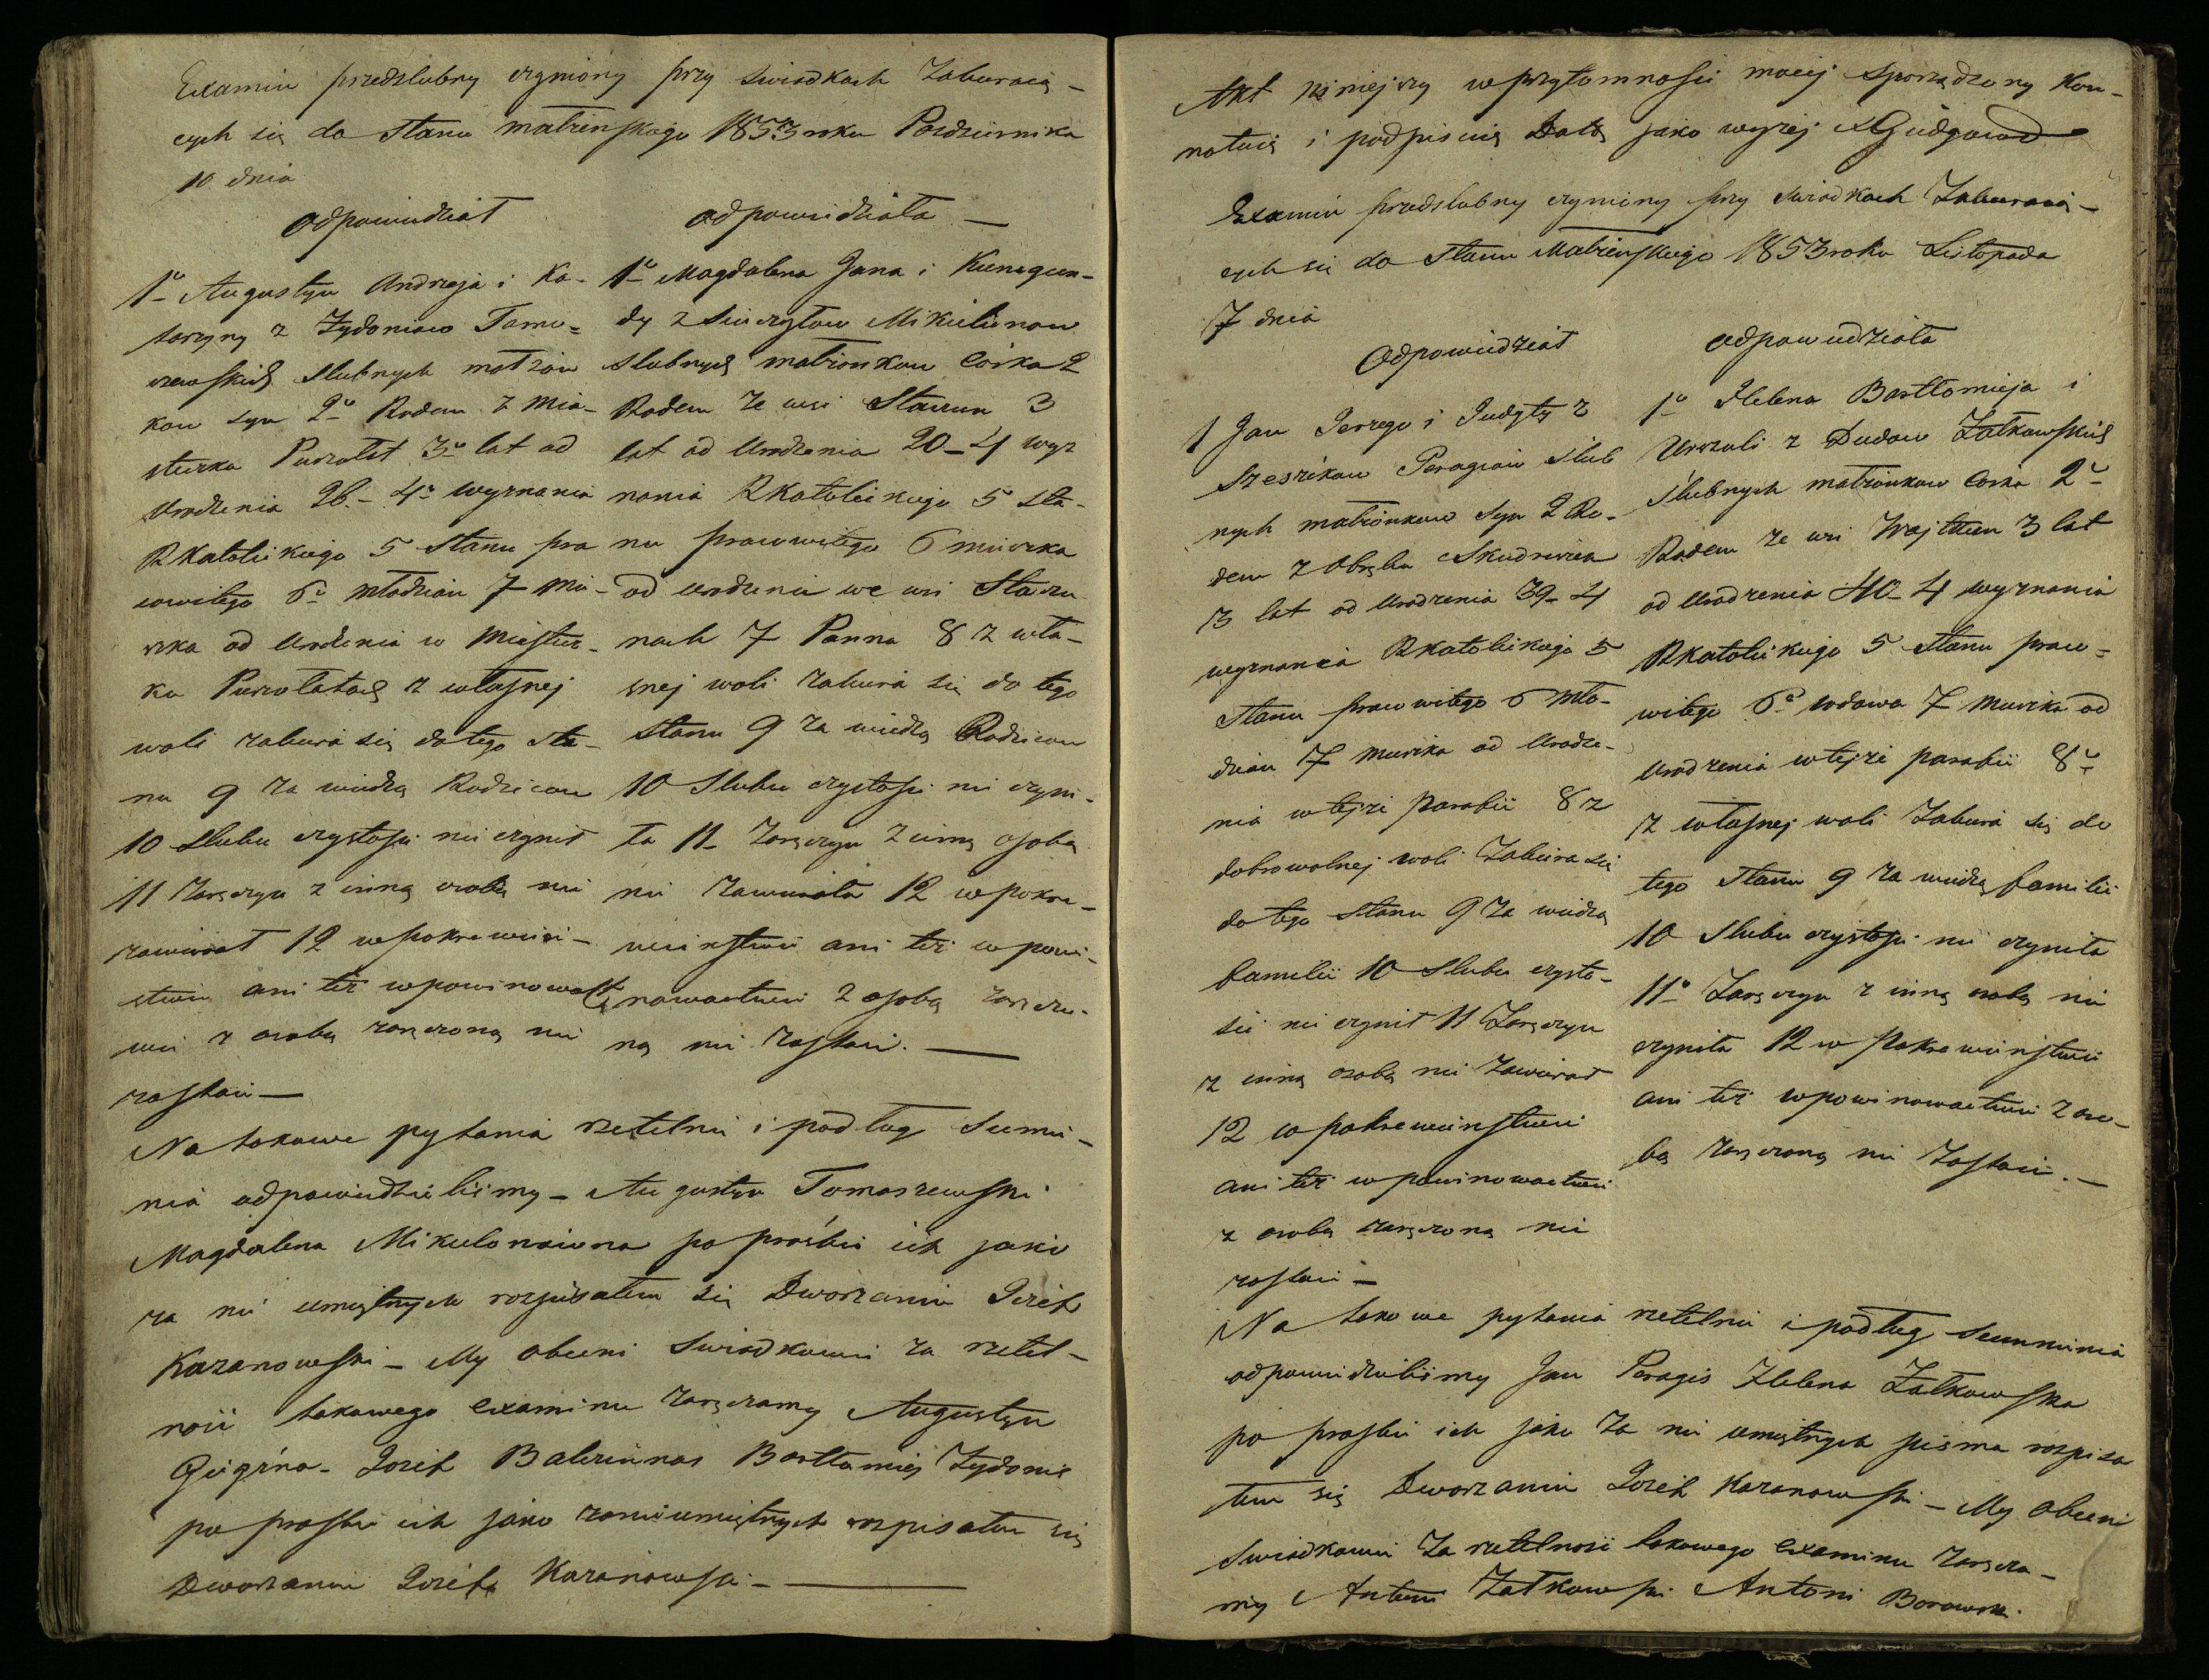 Examin przedslubny czyniony przy swiadkach Zabieraią-
cych się do stanu małżenskiego 1853 roku Pazdziernika
10 dnia
odpowiedział
1o Augustyn Andrzeja i Ka-
tarzyny z Żydoniow Toma-
szewskich Slubnych małżon
kow syn 2o Rodem z mia-
steczka Puszołat 3o lat od
Urodzenia 26.- 4o wyznania
RKatolickiego 5 Stanu pra
wowitego 6o młodzian 7 mie-
szka od Urodzenia w Miastecz-
ku Puszołatach z własnej
woli zabiera się do tego sta-
nu 9 za wiedzą Rodzicow
10 Slubu czystości nie czynił
11 Zaręczyn z inną osobą nie
zawierał 12 w pokrewień-
stwie ani też w powinowact
wie z osobą zaręczoną nie
zostaie —
odpowiedziała —
1o Magdalena Jana i Kunegun-
dy z Mikielionow
Slubnych małżonkow Corka 2
Rodem ze wsi Stawun 3
lat od Urodzenia 20 - 4 wyz
nania RKatolickiego 5 Sta-
nu prawowitego 6 mieszka
od urodzenia we wsi Stawu
nach 7 Panna 8 z wła-
snej woli zabiera się do tego
stanu 9 za wiedzą Rodzicow
10 Slubu czystości nie czyni-
ła 11 - Zaręczyn z inną osobą
nie zawierała 12 w pokre-
wienstwie ani też w powi-
nowactwie z osobą zaręczo-
ną nie zostaie. —
Na takowe pytania rzetelnie i podług Sumie-
nia odpowiedzieliśmy - Augustyn Tomaszewski
Magdalena Mikielonaiowna po prośbie ich jako
za nie umiętnych rozpisałem się Dworzanin Jozef
Kazanowski - My obecni Swiadkowie za rzetel-
noić takowego examinu zaręczamy Augustyn
Giegżna - Jozef Balcziunas Bartłomiej Żydonis
po prośbie ich jako zanieumiętnych rozpisałem się
Dworzanin Jozef Kazanowski - —
Akt niniejszy w przytomności mojej sporządzony kon-
notuię i podpisuię Datą jako wyżej
Examin przedslubny czyniony przy Swiadkach Zabieraią-
cych się do stanu Małżeńskiego 1853 roku Listopada
7 dnia
Odpowiedział
1 Jan Jerzego i Judyty z
Szeszikow Peragiow slub
nych małżonkow syn 2 Ro-
dem z Obrębu Skudzwiea
3 lat od Urodzenia 39 - 4
wyznania RKatolickiego 5
Stanu prawowitego 6 mło-
dzian 7 mieszka od Urodze-
nia w tejże Parafii 8 z
dobrowolnej woli Zabiera się
do tego Stanu 9 za wiedzą
familii 10 Slubu czysto-
ści nie czynił 11 Zaręczyn
z inną osobą nie zawierał
12 w pokrewienstwie
ani też w powinowactwie
z osobą zaręczoną nie
zostaie -
odpowiedziała
1o Helena Bartłomieja i
Urszuli z Dudow Żatkowskich
Slubnych małżonkow Corka 2o
Rodem ze wsi 3 lat
od Urodzenia 40 - 4 wyznania
RKatolickiego 5 Stanu prawo-
witego 6o wdowa 7 mieszka od
Urodzenia w tejże parafii 8o
z własnej woli Zabiera się do
tego Stanu 9 za wiedzą familii
10 Slubu czystości nie czyniła
11o Zaręczyn z inną osobą nie
czyniła 12 w Pokrewienstwie
ani też w powinowactwie z oso-
bą zaręczoną nie zostaie. —
Na takowe pytania rzetelnie i podług Summienia
odpowiedzieliśmy Jan Peragis Helena Żatkowska
po prosbie ich jako za nie umiętnych pisma rozpisa
łem się Dworzanin Jozef Kazanowski - My obecni
Swiadkowie Za rzetelność takowego Examinu zaręcza-
my Antoni Żatkowski Antoni Borowski.